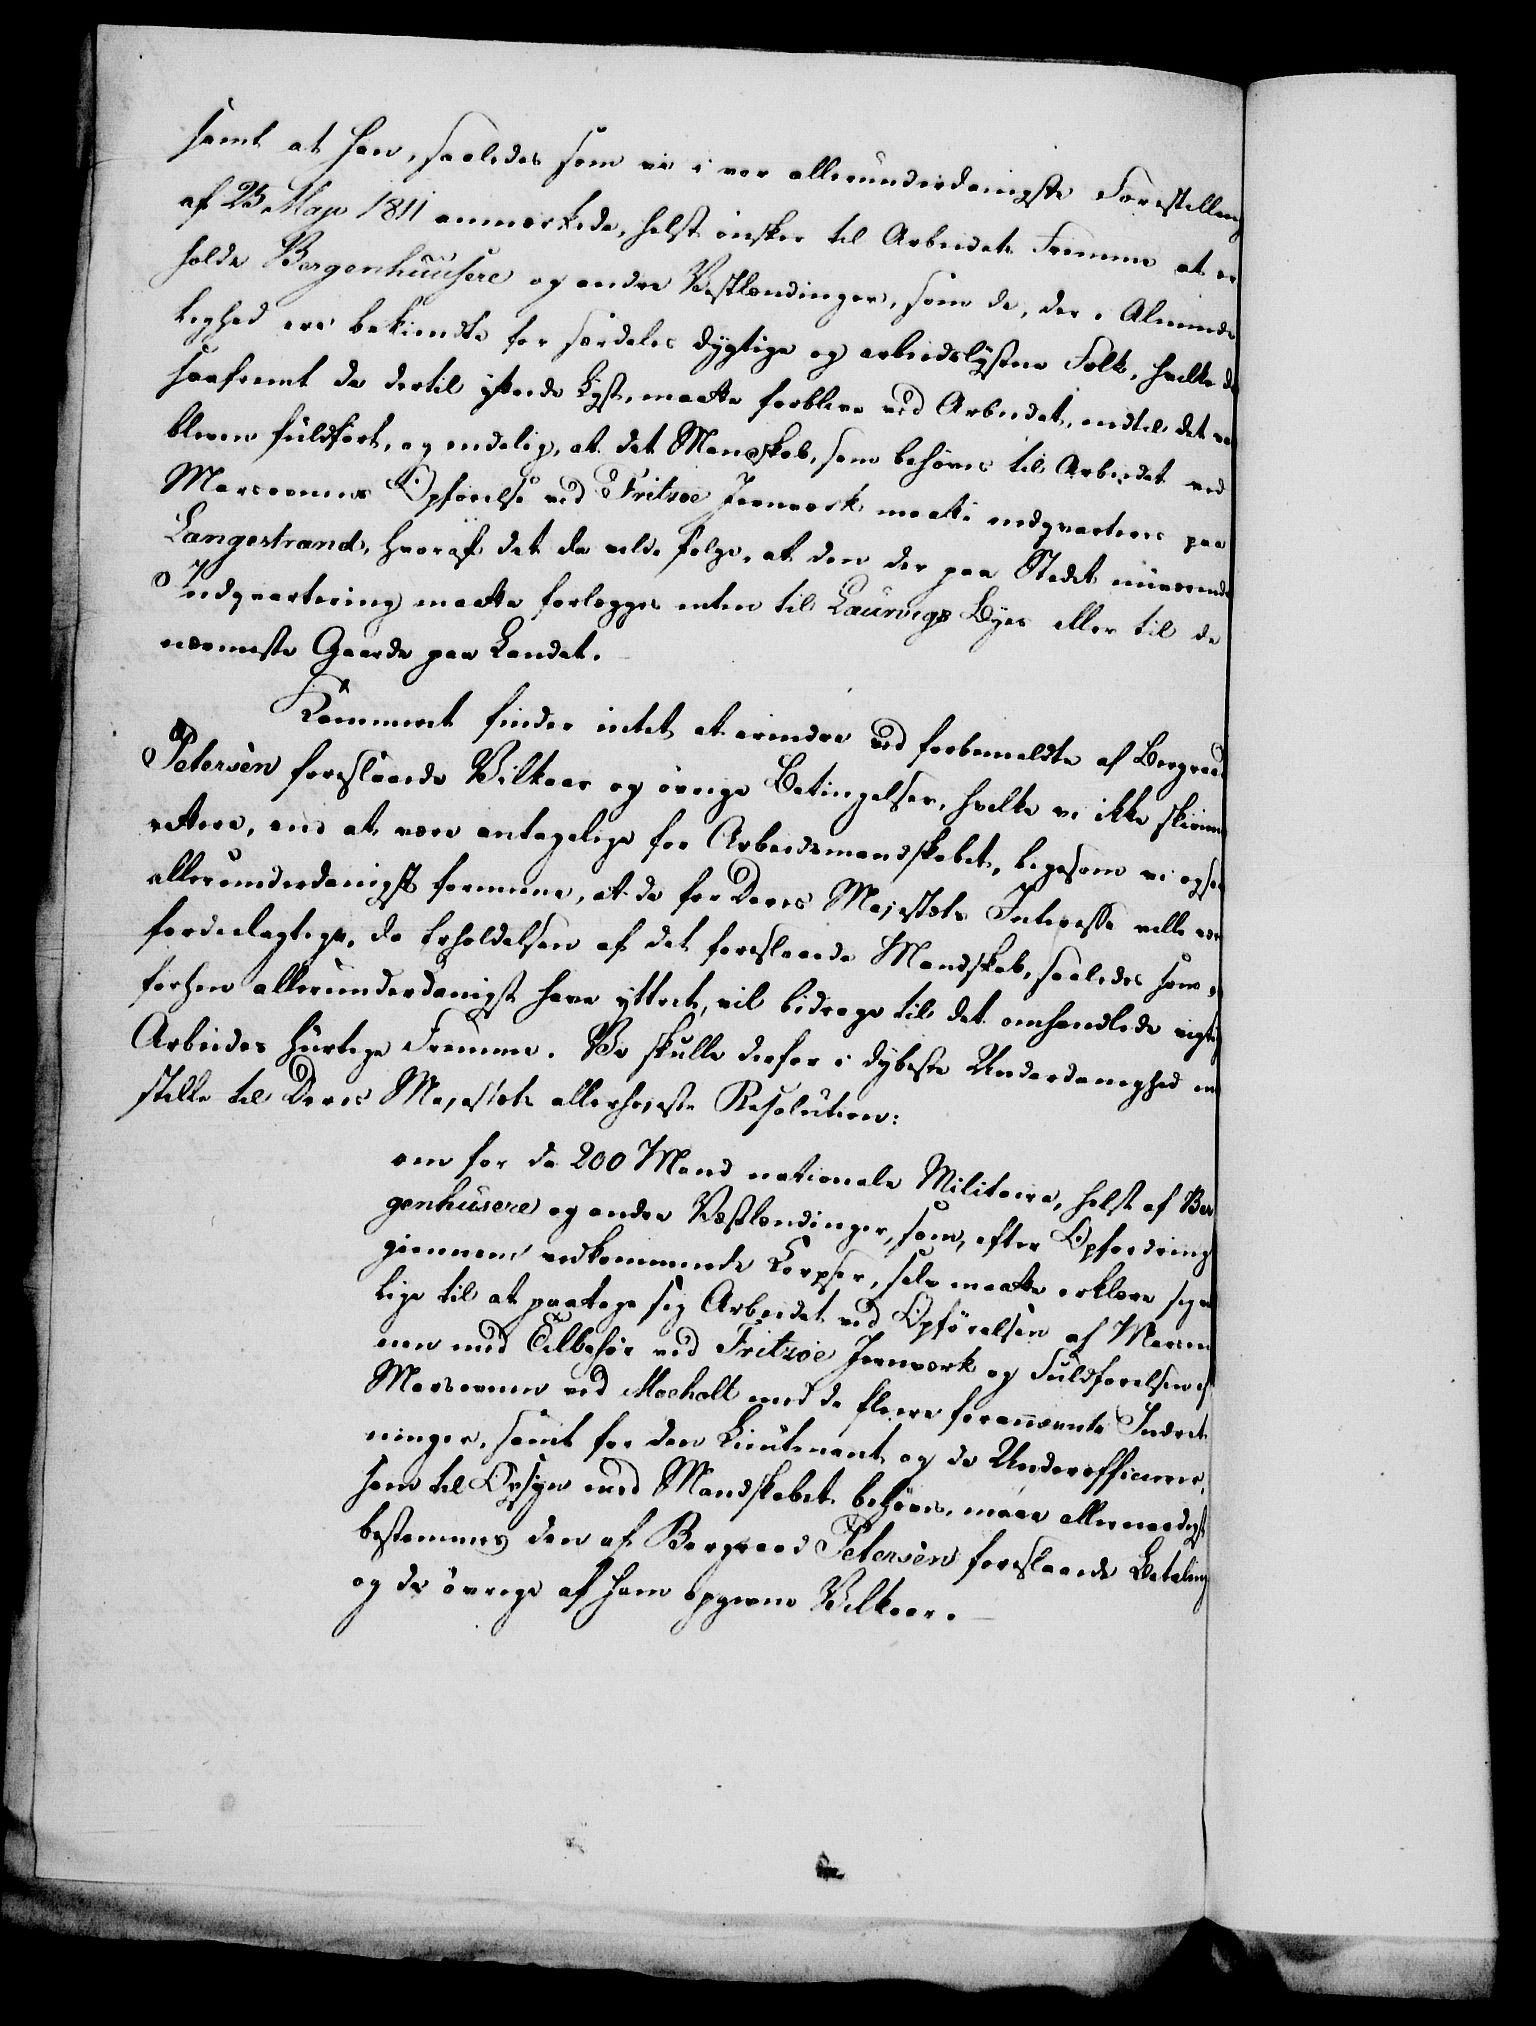 samt at han, saaledes som vi i vor allerunderdanigste Forestilling
af 25 Maji 1811 anmærkede, helst ønsker til Arbeidets Fremme at er
holde Bergenhuusere og andre Vestlændinger, som de, der i Alminde
lighed ere bekiendte for særdeles dygtige og arbeidslystne Folk, hvilke da
saafremt de dertil yttrede Lyst, maatte forblive ved Arbeidet, indtil det var
bleven fuldført, og endelig, at det Mandskab, som behøves til Arbeidet ved
Masovnens Opførelse ved Fritzøe Jernværk maatte indqvarteres paa
Langestrand, hvoraf det da vilde følge, at den der paa Stedet nuværende
Indqvartering maatte forlægges enten til Laurvigs Byes eller til de
nærmeste Gaarde paa Landet.
Kammeret finder intet at erindre ved forbemeldte af Bergraad
Petersen foreslaaede Vilkaar og øvrige Betingelser, hvilke vi ikke skiønne
rettere, end at være antagelige for Arbeidsmandskabet, ligesom vi ogsaa
allerunderdanigst formene, at de for Deres Majestæts Interesse ville være
fordeelagtige, da Erholdelsen af det foreslaaede Mandskab, saaledes som vi
forhen allerunderdanigst have yttret, vil bidrage til det omhandlede vigtige
Arbeides hurtige Fremme. Vi skulle derfor i dybeste Underdanighed ind
stille til Deres Majestæts allerhøieste Resolution:
om for de 200 Mand nationale Militaire, helst af Ber
genhusere og andre Vestlændinger, som, efter Opfordring
giennem vedkommende Corpser, selv maatte erklære sig vil
lige til at paatage sig Arbeidet ved Opførelsen af Masov
nen med Tilbehør ved Fritzøe Jernværk og Fuldførelsen af
Masovnen ved Moeholt med de fleere forannævnte Indret
ninger, samt for den Lieutenant og de Underofficierer,
som til Opsyn med Mandskabet behøves, maae allernaadigst
bestemmes den af Bergraad Petersen foreslaaede Betaling
og de øvrige af ham opgivne Vilkaar.